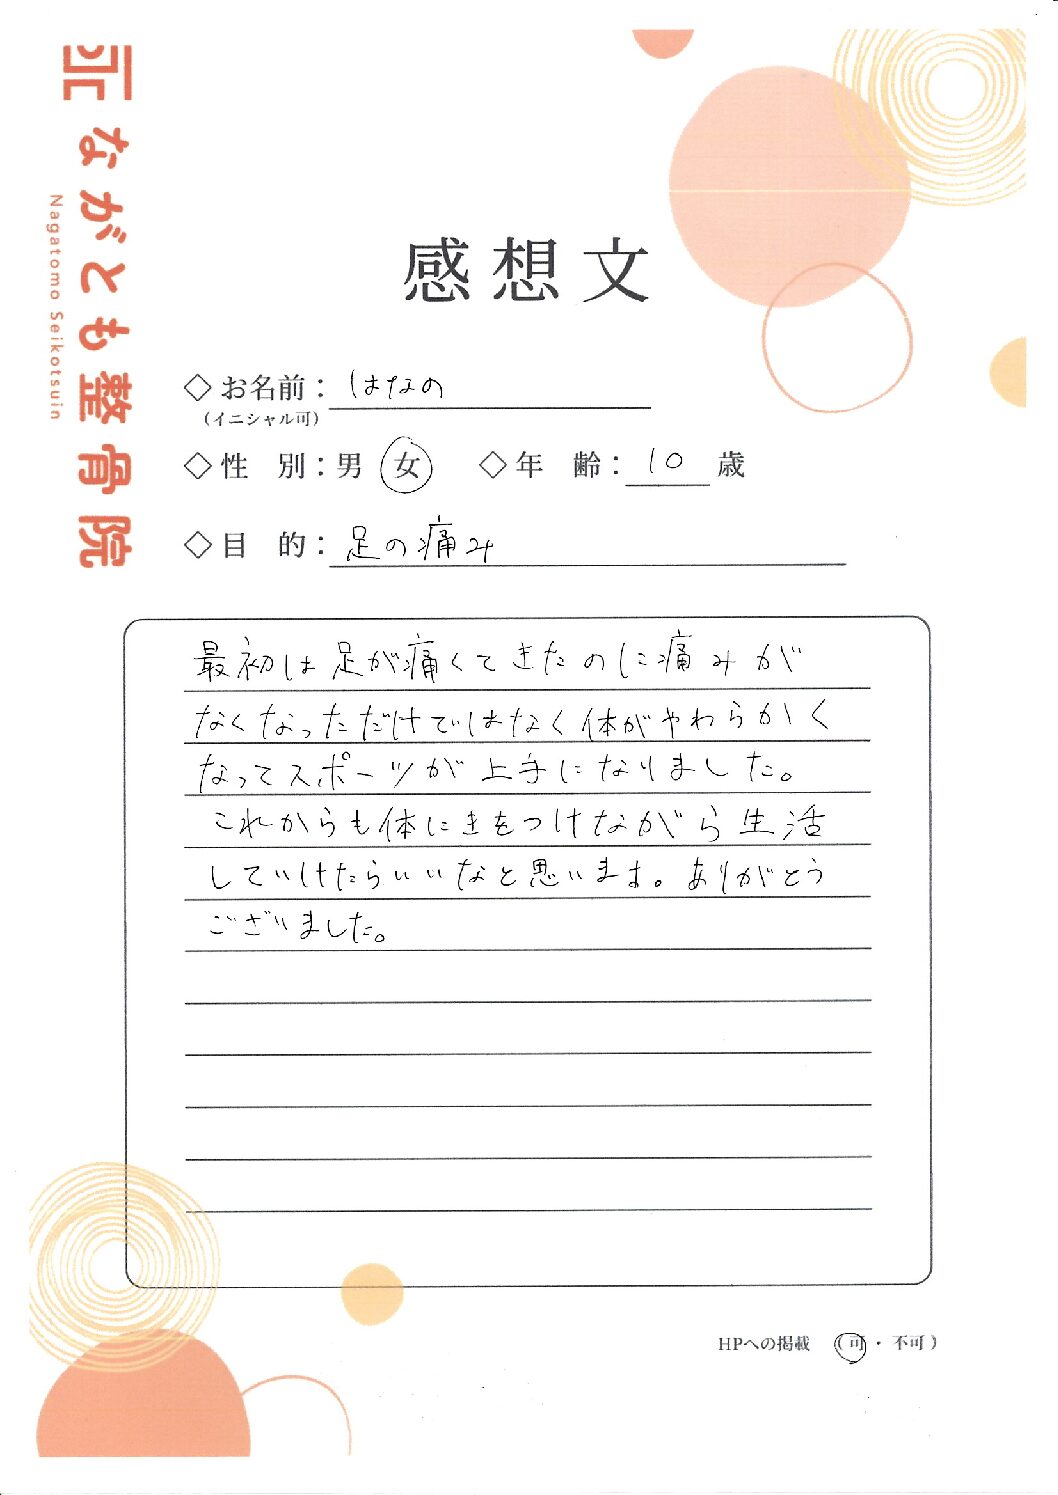 ながとも整骨院
Nagatomo Seikotsuin
感想文
◇お名前：はなの
（イニシャル可）
◇性　別：男　女　◇年　齢：10 歳
◇目　的：足の痛み
最初は足が痛くてきたのに痛みが
なくなっただけではなく体がやわらかく
なってスポーツが上手になりました。
これからも体にきをつけながら生活
していけたらいいなと思います。ありがとう
ございました。
HPへの掲載　（可・不可）